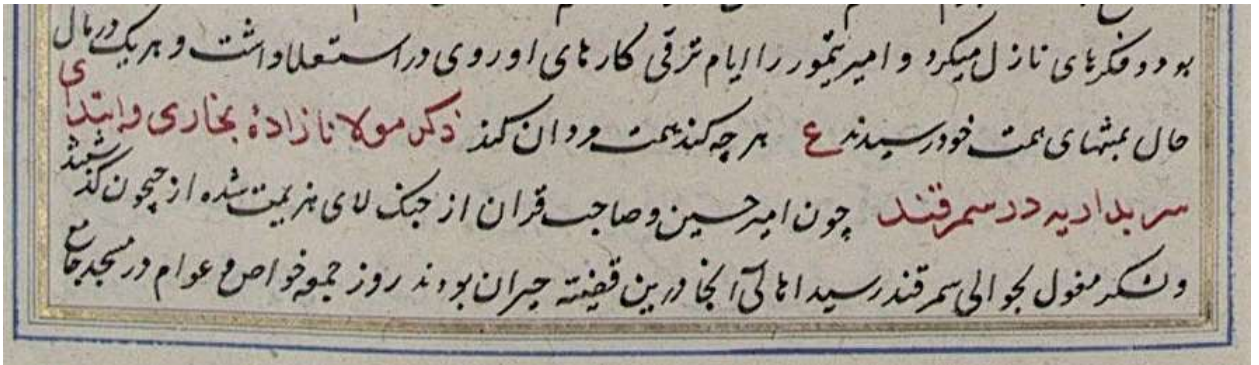 بود و فکرهای نازل میکرد و امیر تیمور را ایام ترقی کارهای او روی در استعلا داشت و هر یک در مآل
حال بمنتهای همت خود رسیدند ع هر چه کند همت مردان کند ذکر مولانا زادهٔ بخاری و ابتدای
سربداریه در سمرقند چون امیر حسین و صاحب قران از جنک لای هزیمت شده از جیحون گذشتند
و لشکر مغول بحوالی سمرقند رسید اهالی آنجا درین قضیه حیران بودند روز جمعه خواص و عوام در مسجد جامع